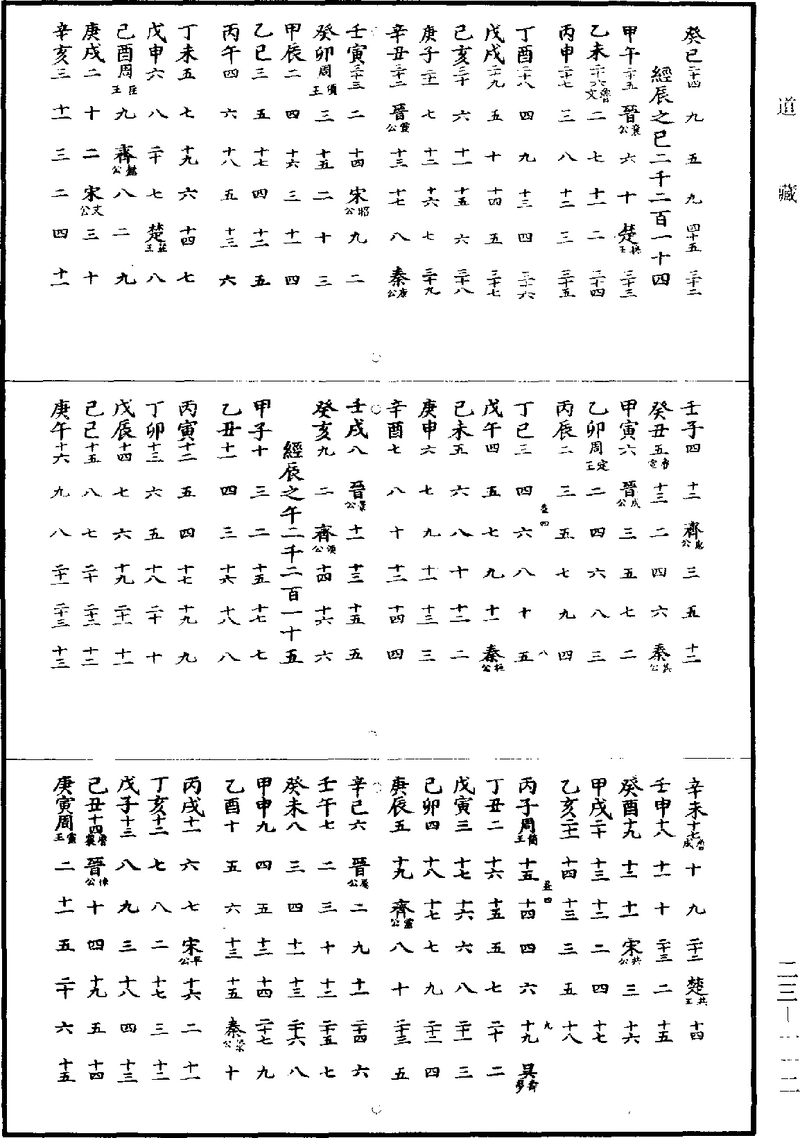 道 藏
癸巳二十四 九 五 九 四十五 三十二
經辰之巳二千二百一十四
甲午二十五 晉襄公 六 十 楚穆王 三十三
乙未二十六魯文 二 七 十一 二 三十四
丙申二十七 三 八 十二 三 三十五
丁酉二十八 四 九 十三 四 三十六
戊戌二十九 五 十 十四 五 三十七
己亥三十 六 十一 十五 六 三十八
庚子三十一 七 十二 十六 七 三十九
辛丑三十二 晉靈公 十三 十七 八 秦康公
壬寅三十三 二 十四 宋昭公 九 二
癸卯周頃王 三 十五 二 十 三
甲辰二 四 十六 三 十一 四
乙巳三 五 十七 四 十二 五
丙午四 六 十八 五 十三 六
丁未五 七 十九 六 十四 七
戊申六 八 二十 七 楚莊王 八
己酉周匡王 九 齊懿公 八 二 九
庚戌二 十 二 宋文公 三 十
辛亥三 十一 三 二 四 十一
壬子四 十二 齊惠公 三 五 十二
癸丑五魯宣 十三 二 四 六 秦共公
甲寅六 晉成公 三 五 七 二
乙卯周定王 二 四 六 八 三
丙辰二 三 五 七 九 四
益四 八
丁巳三 四 六 八 十 五
戊午四 五 七 九 十一 秦桓公
己未五 六 八 十 十二 二
庚申六 七 九 十一 十三 三
辛酉七 八 十 十二 十四 四
壬戌八 晉景公 十一 十三 十五 五
癸亥九 二 齊頃公 十四 十六 六
經辰之午二千二百一十五
甲子十 三 二 十五 十七 七
乙丑十一 四 三 十六 十八 八
丙寅十二 五 四 十七 十九 九
丁卯十三 六 五 十八 二十 十
戊辰十四 七 六 十九 二十一 十一
己巳十五 八 七 二十 二十二 十二
庚午十六 九 八 二十一 二十三 十三
辛未十七魯成 十 九 二十二 楚共王 十四
壬申十八 十一 十 二十三 二 十五
癸酉十九 十二 十一 宋共公 三 十六
甲戌二十 十三 十二 二 四 十七
乙亥二十一 十四 十三 三 五 十八
益四 九
丙子周簡王 十五 十四 四 六 十九 吳壽夢
丁丑二 十六 十五 五 七 二十 二
戊寅三 十七 十六 六 八 二十一 三
己卯四 十八 十七 七 九 二十二 四
庚辰五 十九 齊靈公 八 十 二十三 五
辛巳六 晉厲公 二 九 十一 二十四 六
壬午七 二 三 十 十二 二十五 七
癸未八 三 四 十一 十三 二十六 八
甲申九 四 五 十二 十四 二十七 九
乙酉十 五 六 十三 十五 秦景公 十
丙戌十一 六 七 宋平公 十六 二 十一
丁亥十二 七 八 二 十七 三 十二
戊子十三 八 九 三 十八 四 十三
己丑十四魯襄 晉悼公 十 四 十九 五 十四
庚寅周靈王 二 十一 五 二十 六 十五
二三—一一二